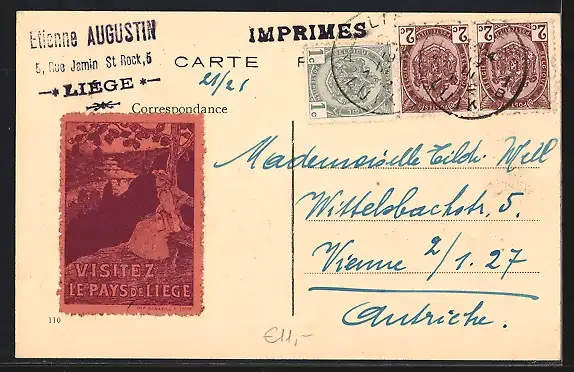 Etienne AUGUSTIN
5, Rue Jamin St Rock, 5
LIÉGE
IMPRIMES
CARTE P
21/21
Correspondance
1c 1c
2c 2c
2c 2c
VISITEZ
LE PAYS DE LIEGE
Mademoiselle Tilde Well
Wittelsbachstr. 5.
Vienne 2/1.27
Autriche.
110
€11,-